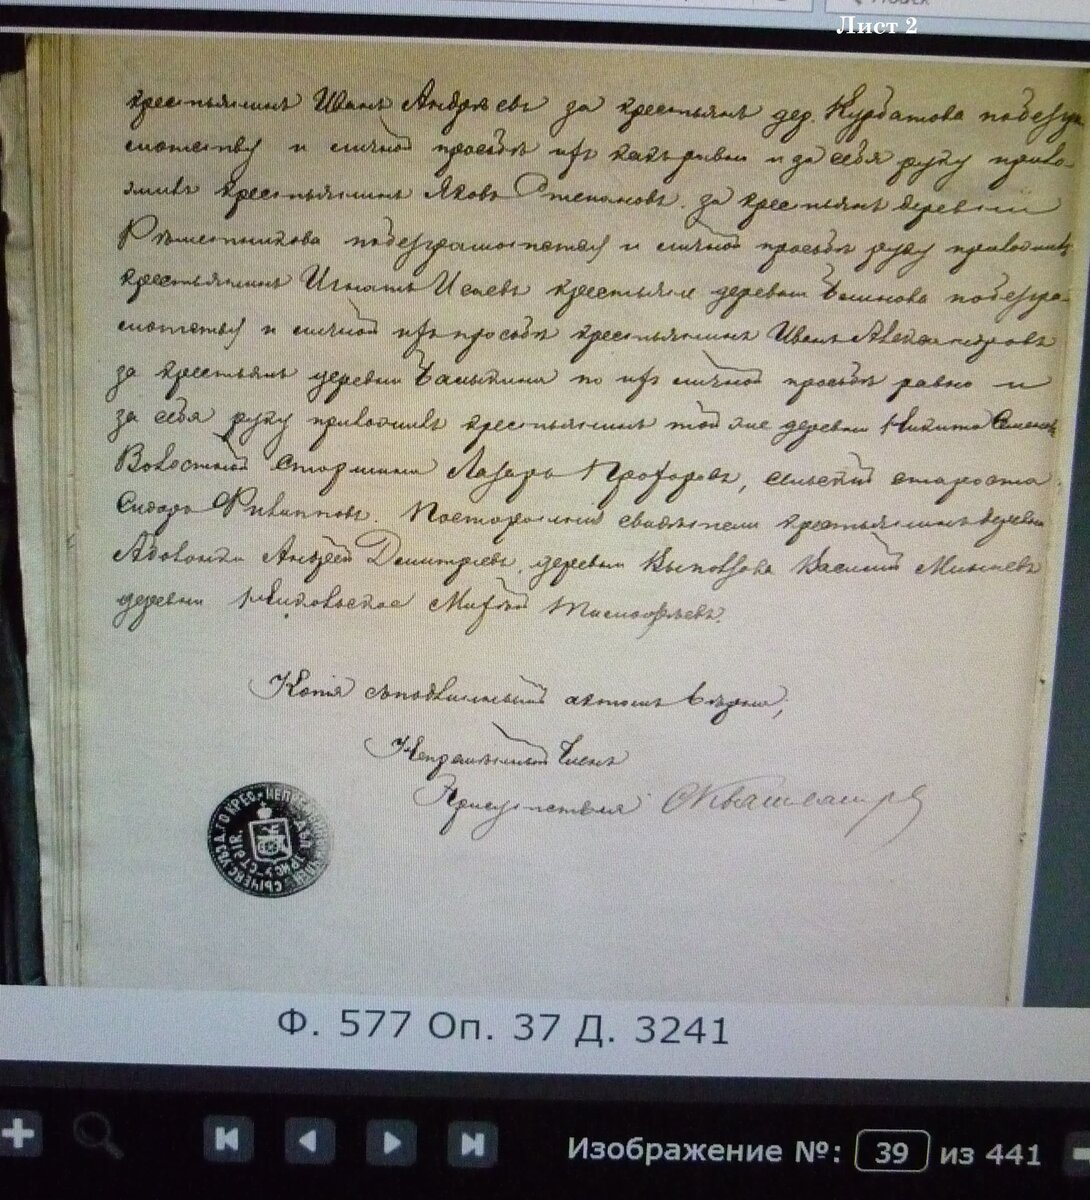 Лист 2
крестьянинъ Иванъ Андреевъ за крестьянъ дер. Курбатова по безгра
мотству и личной просьбѣ ихъ какъ равно и за себя руку прило-
жилъ крестьянинъ Яковъ Степановъ. за крестьянъ деревни
Рѣшетникова по безграмотству и личной просьбѣ руку приложилъ
крестьянинъ Игнатъ Исаевъ крестьянъ деревни по безгра-
мотству и личной ихъ просьбѣ крестьянинъ Иванъ Александровъ
за крестьянъ деревни по ихъ личной просьбѣ равно и
за себя руку приложилъ крестьянинъ той же деревни Никита Семеновъ
Волостной Старшина Лазарь Прохоровъ, сельский староста
Сидоръ Филипповъ. Посторонние свидѣтели крестьянинъ деревни
Андрей Дмитриевъ, деревни Василий Минаевъ
деревни Тимофеевъ.
Копія съ подлиннымъ актомъ вѣрна;
Непремѣнный Членъ
Присутствия
Ф. 577 Оп. 37 Д. 3241
Изображение №: 39 из 441